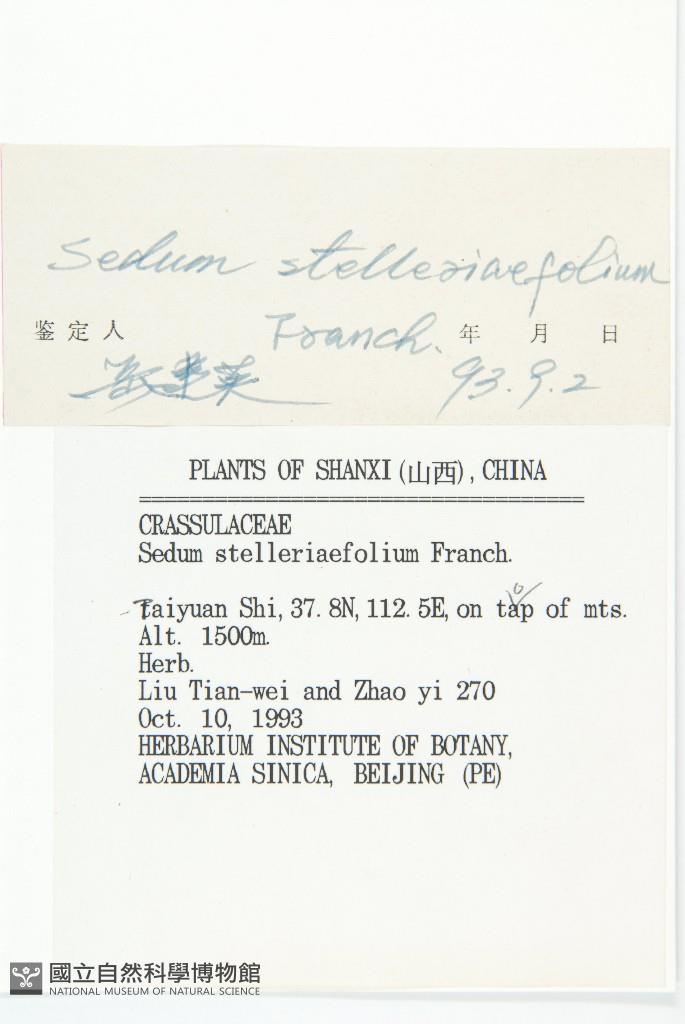 Sedum stelleriaefolium
鉴定人 Franch. 年 月 日
93.9.2
PLANTS OF SHANXI(山西), CHINA
CRASSULACEAE
Sedum stelleriaefolium Franch.
Taiyuan Shi, 37. 8N, 112. 5E, on tap of mts.
o
Alt. 1500m.
Herb.
Liu Tian-wei and Zhao yi 270
Oct. 10, 1993
HERBARIUM INSTITUTE OF BOTANY,
ACADEMIA SINICA, BEIJING (PE)
國立自然科學博物館
NATIONAL MUSEUM OF NATURAL SCIENCE